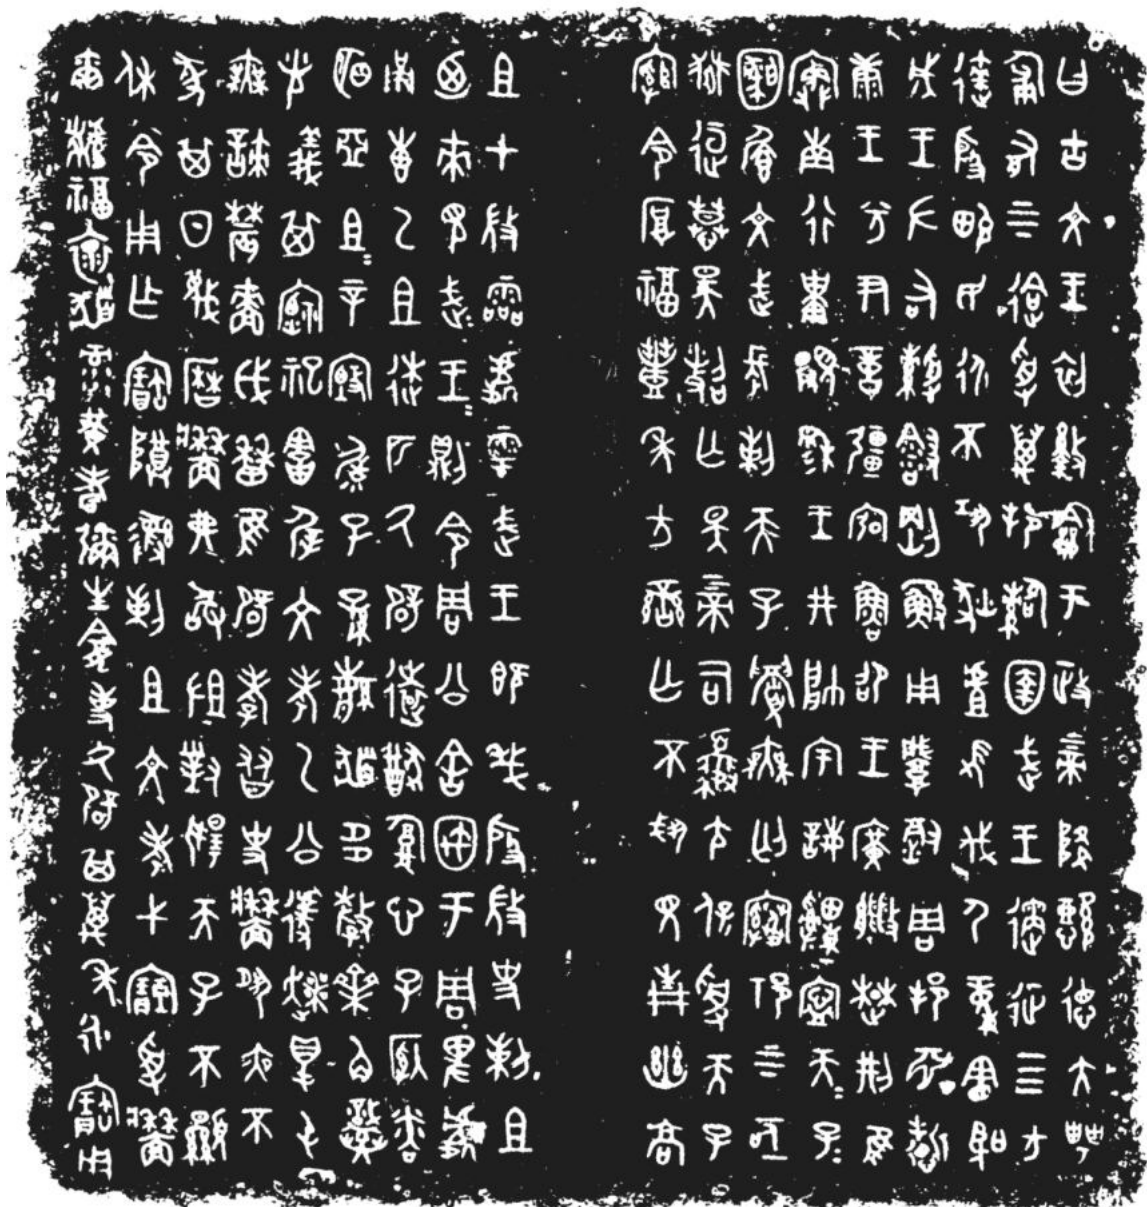 曰古文王初龢于政上帝降懿德大甹
匍有上下迨受萬邦圉武王遹征四方
達殷畯民永不巩狄虘伐尸童憲聖
成王左右剛鯀用肇徹周邦淵哲
康王兮尹億疆宖魯卲王廣楚荊唯
寏南行祗顯穆王井帥宇誨申寧天子
天子文武長剌天子眉無匄祁上下
亟桓慕昊亡斁上帝司夒尢保受天子
綰令厚福豐年方蠻亡不見青幽高
且才微靈處雩武王既殷微史剌且
廼來見武王武王則令周公舍于周卑處
甬惠乙且逨匹厥辟遠猷腹心子粦
明亞且且辛毓子孫繁多釐齊角熾
光義其禋祀害屖文考乙公遽爽得屯
無諫農穡歲唯辟孝友史牆夙夜不
彖其日蔑曆牆弗敢沮對揚天子不顯
休令用乍寶尊彝剌且文考弋受牆
爾福褱录黃耇彌生龕事厥辟其萬年永寶用